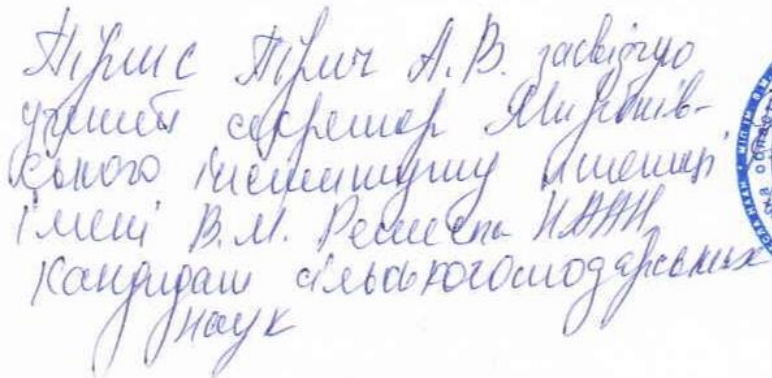 Підпис Пірич А.В. засвідчую
учений секретар Миронів-
ського інституту пшениці
імені В.М. Ремесла НААН
кандидат сільськогосподарських
наук